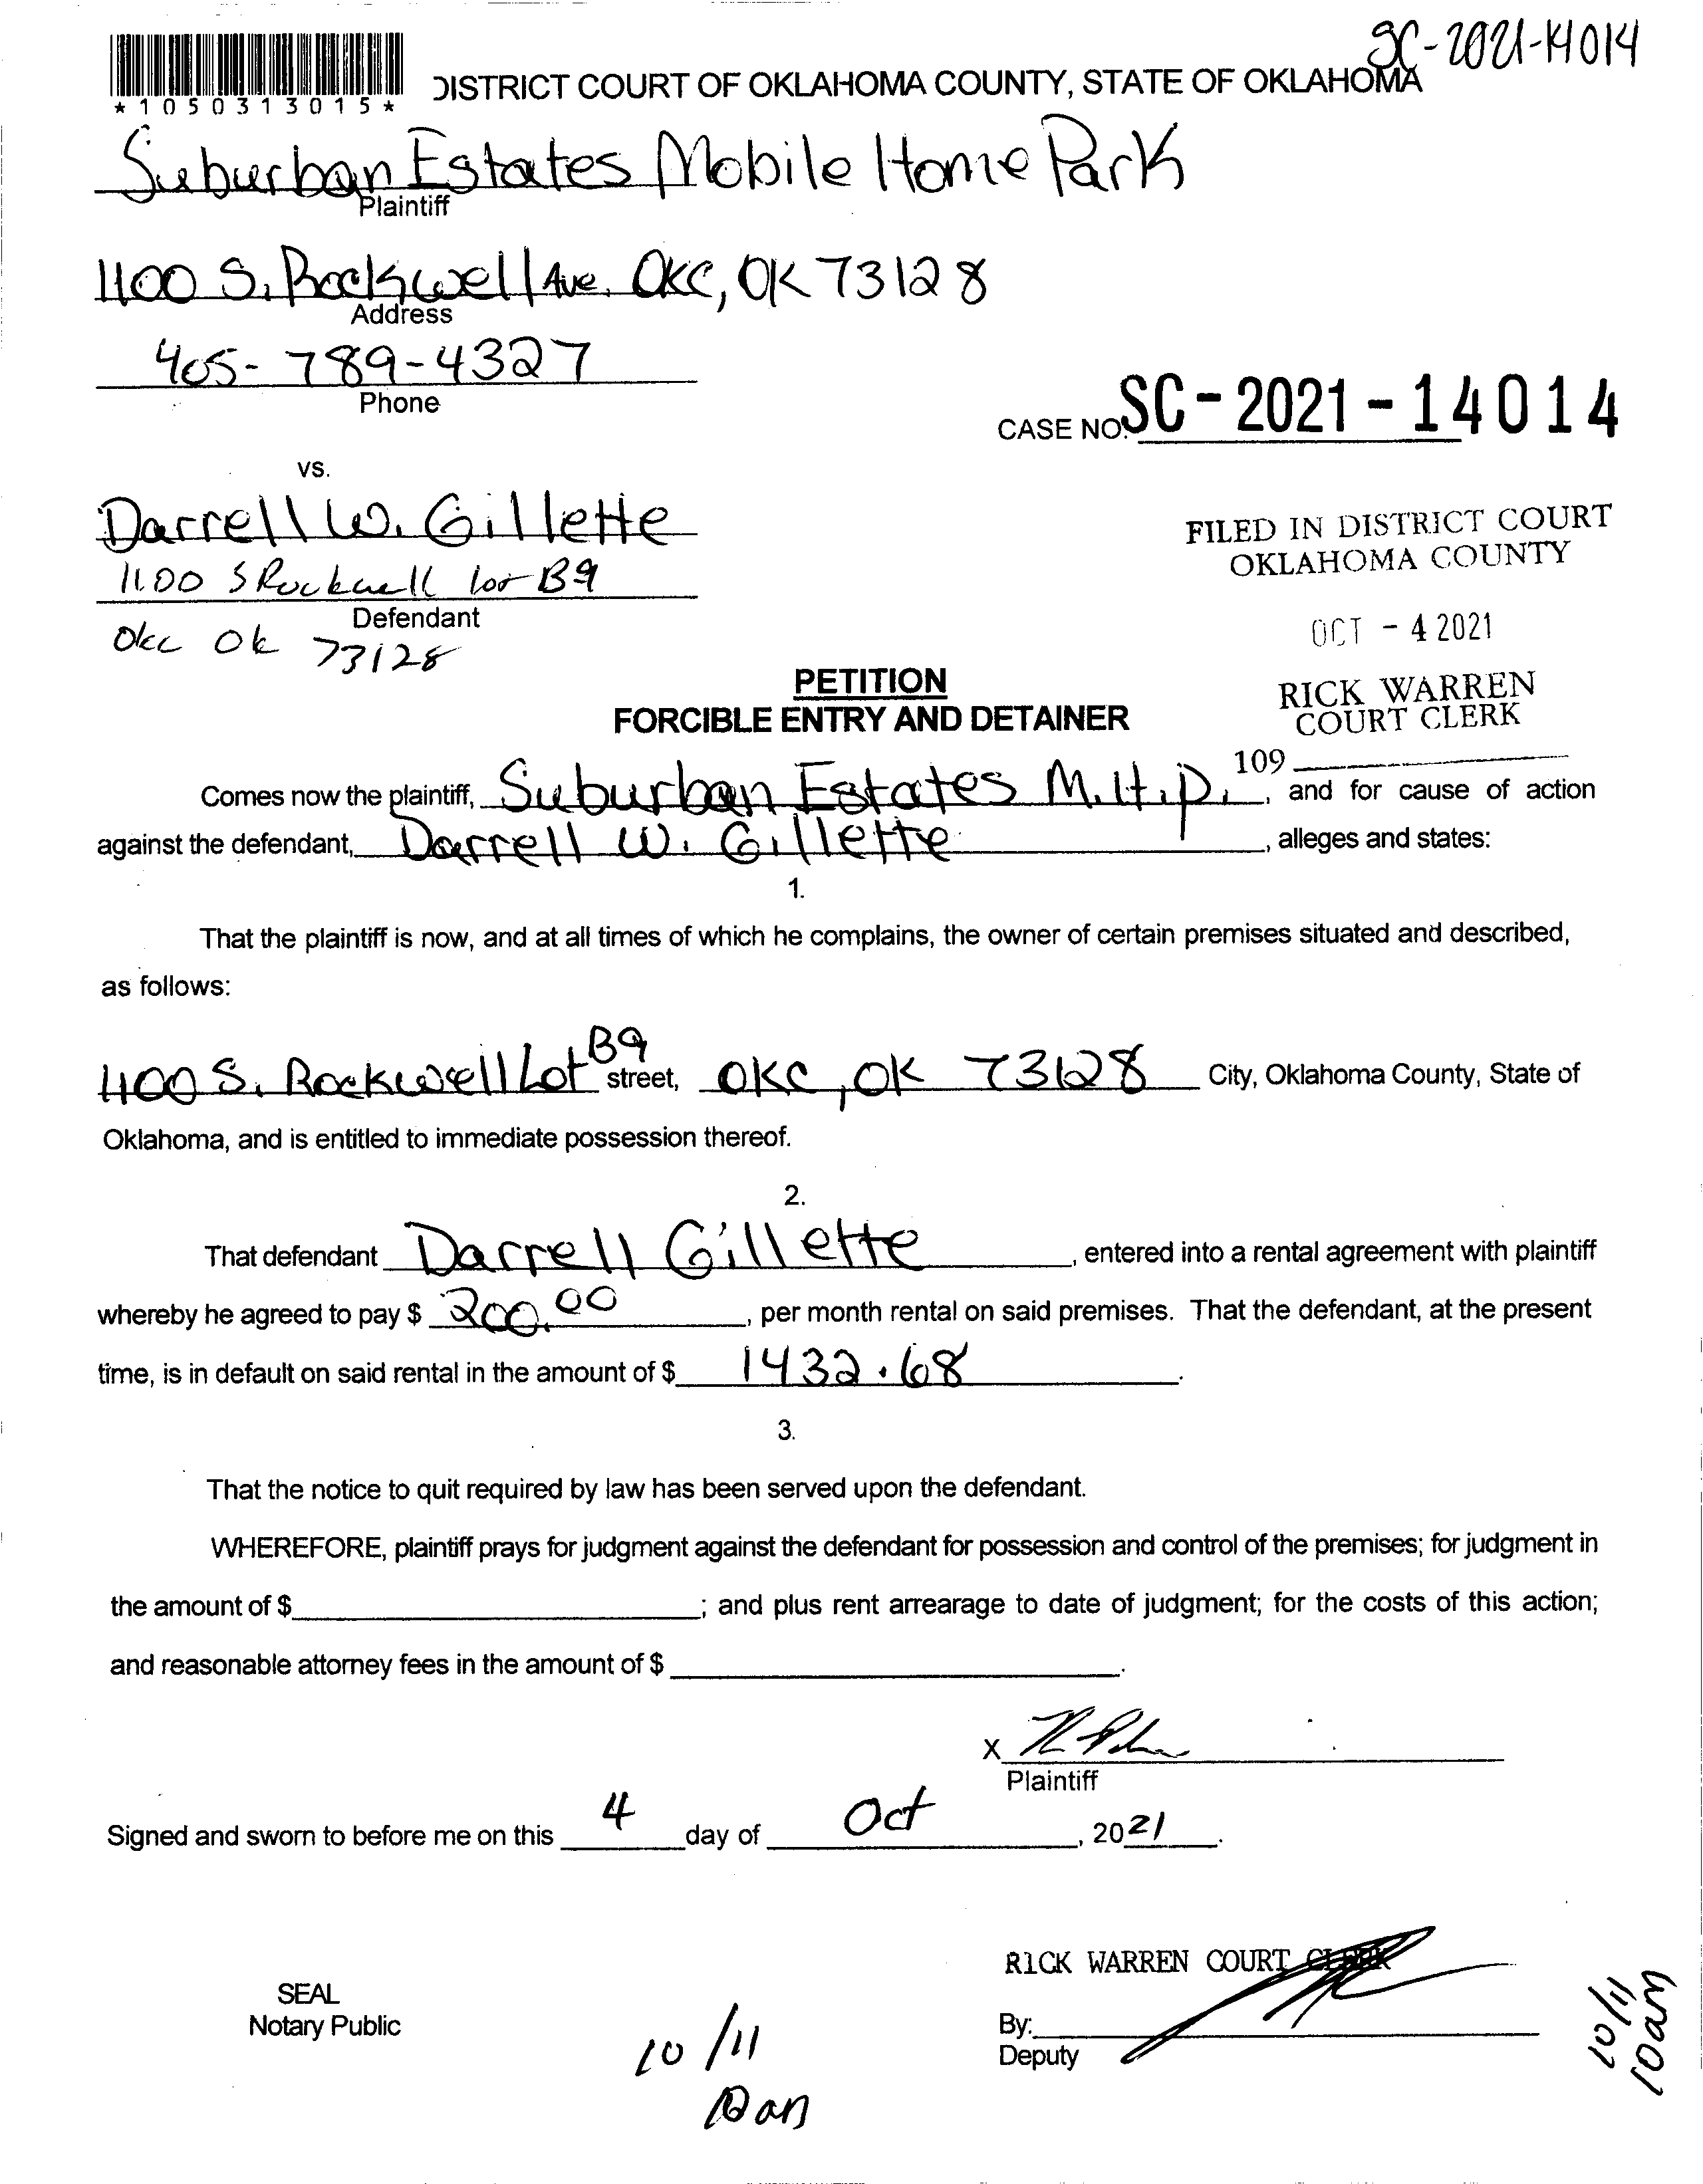 SC-2021-14014
*1050313015*
DISTRICT COURT OF OKLAHOMA COUNTY, STATE OF OKLAHOMA
Suburban Estates Mobile Home Park
Plaintiff
1100 S. Rockwell Ave. OKC, OK 73128
Address
405-789-4327
Phone
CASE NO. SC-2021-14014
vs.
Darrell W. Gillette
1100 S Rockwell lot B9
Defendant
Okc Ok 73128
FILED IN DISTRICT COURT
OKLAHOMA COUNTY
OCT - 4 2021
RICK WARREN
COURT CLERK
109
PETITION
FORCIBLE ENTRY AND DETAINER
Comes now the plaintiff, Suburban Estates M.H.P., and for cause of action
against the defendant, Darrell W. Gillette, alleges and states:
1.
That the plaintiff is now, and at all times of which he complains, the owner of certain premises situated and described,
as follows:
1100 S. Rockwell Lot B9 street, OKC, OK 73128 City, Oklahoma County, State of
Oklahoma, and is entitled to immediate possession thereof.
2.
That defendant Darrell Gillette, entered into a rental agreement with plaintiff
whereby he agreed to pay $ 200.00, per month rental on said premises. That the defendant, at the present
time, is in default on said rental in the amount of $ 1432.68.
3.
That the notice to quit required by law has been served upon the defendant.
WHEREFORE, plaintiff prays for judgment against the defendant for possession and control of the premises; for judgment in
the amount of $ ; and plus rent arrearage to date of judgment; for the costs of this action;
and reasonable attorney fees in the amount of $ .
X
Plaintiff
Signed and sworn to before me on this 4 day of Oct, 2021.
RICK WARREN COURT CLERK
SEAL
Notary Public
By:
Deputy
10/11
10am
10/11
10am